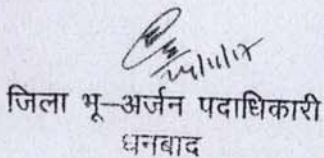 जिला भू–अर्जन पदाधिकारी
धनबाद